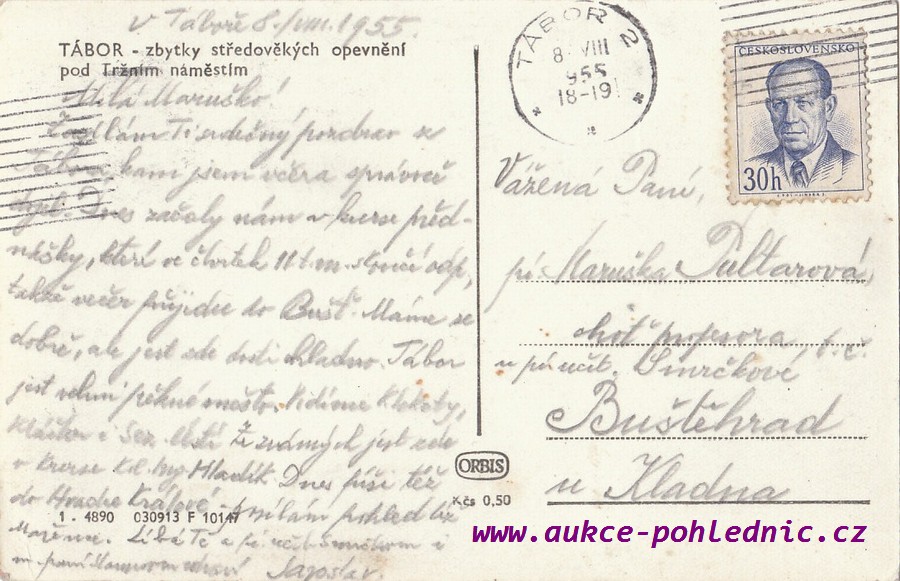 V Táboře 8./VIII. 1955.
TÁBOR - zbytky středověkých opevnění
pod Tržním náměstím
Milá Maruško!
Zasílám Ti srdečný pozdrav z
Tábora, kam jsem včera správně
přij. Dnes začaly nám v kurse před-
nášky, které ve čtvrtek 11 t.m. skončí odp.,
takže večer přijedu do Bušt. Máme se
dobře, ale jest zde dosti chladno. Tábor
jest velmi pěkné město. Vidíme Klokoty,
Klášter i Sez. Ústí. Ze známých jest zde
v kurse kol. Ing. Hladík. Dnes píši též
do Hradce Králové
1 . 4890 030913 F 10147
Líbá Tě a
Jaroslav.
TÁBOR 2
8. VIII
955
18-19
ČESKOSLOVENSKO
30h
Vážená Paní,
pí Maruška Pultarová,
choť profesora t. č.
u pí učit. Smrčkové
Buštěhrad
u Kladna
ORBIS
Kčs 0,50
www.aukce-pohlednic.cz